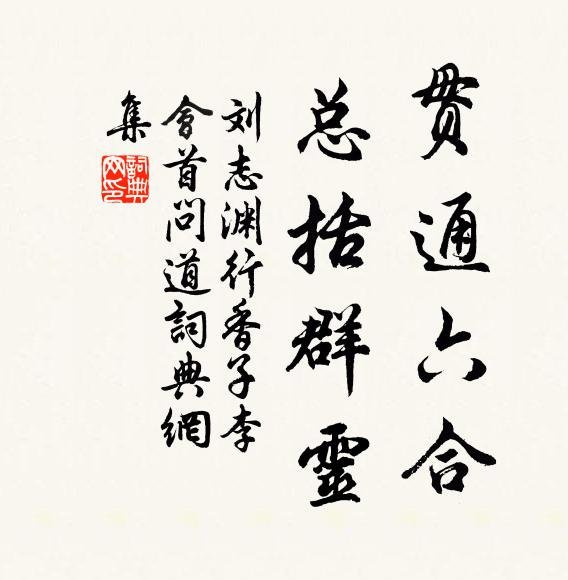 贯通六合
总括群靈
刘志渊行香子李
會首问道詞典網
集
詞典
网印